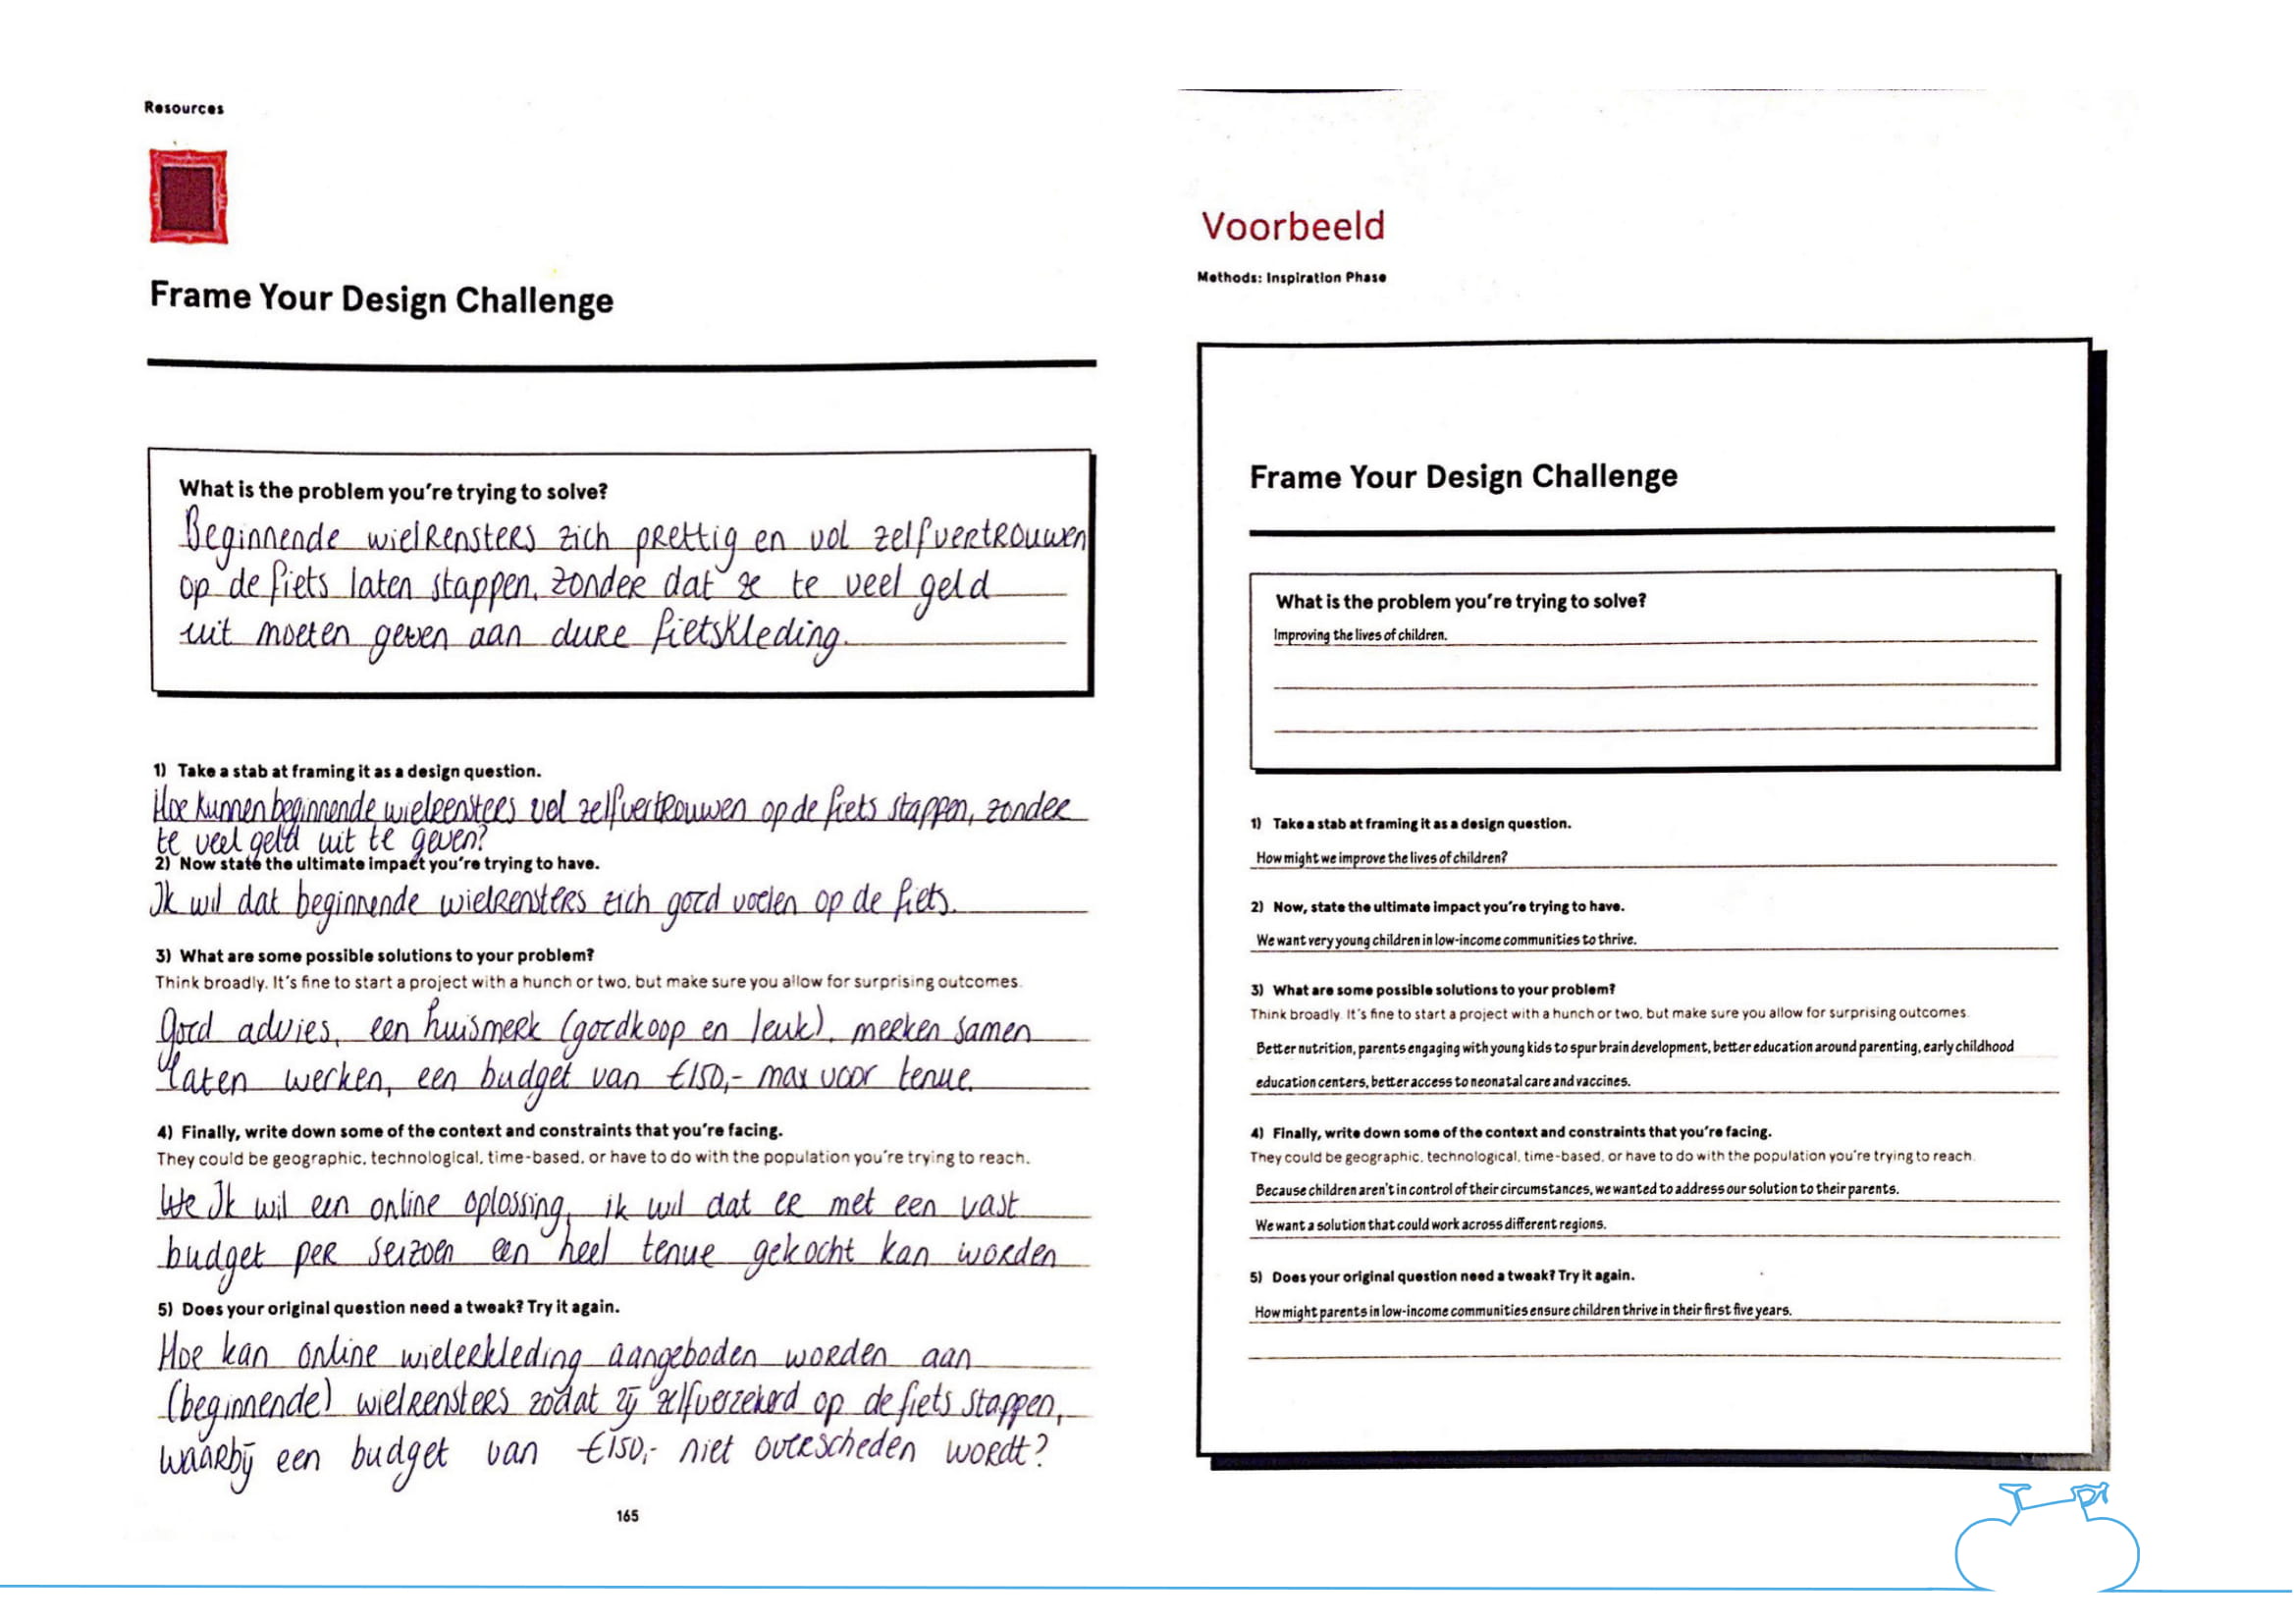 Resources
Frame Your Design Challenge
What is the problem you're trying to solve?
Beginnende wielrensters zich prettig en vol zelfvertrouwen
op de fiets laten stappen, zonder dat ze te veel geld
uit moeten geven aan dure fietskleding.
1) Take a stab at framing it as a design question.
Hoe kunnen beginnende wielrensters vol zelfvertrouwen op de fiets stappen, zonder
te veel geld uit te geven?
2) Now state the ultimate impact you're trying to have.
Ik wil dat beginnende wielrensters zich goed voelen op de fiets.
3) What are some possible solutions to your problem?
Think broadly. It's fine to start a project with a hunch or two, but make sure you allow for surprising outcomes.
Goed advies, een huismerk (goedkoop en leuk), merken samen
laten werken, een budget van €150,- max voor tenue.
4) Finally, write down some of the context and constraints that you're facing.
They could be geographic, technological, time-based, or have to do with the population you're trying to reach.
We Ik wil een online oplossing, ik wil dat er met een vast
budget per seizoen een heel tenue gekocht kan worden
5) Does your original question need a tweak? Try it again.
Hoe kan online wielerkleding aangeboden worden aan
(beginnende) wielrensters zodat zij zelfverzekerd op de fiets stappen,
waarbij een budget van €150,- niet overscheden wordt?
165
Voorbeeld
Methods: Inspiration Phase
Frame Your Design Challenge
What is the problem you're trying to solve?
Improving the lives of children.
1) Take a stab at framing it as a design question.
How might we improve the lives of children?
2) Now, state the ultimate impact you're trying to have.
We want very young children in low-income communities to thrive.
3) What are some possible solutions to your problem?
Think broadly. It's fine to start a project with a hunch or two, but make sure you allow for surprising outcomes.
Better nutrition, parents engaging with young kids to spur brain development, better education around parenting, early childhood
education centers, better access to neonatal care and vaccines.
4) Finally, write down some of the context and constraints that you're facing.
They could be geographic, technological, time-based, or have to do with the population you're trying to reach.
Because children aren't in control of their circumstances, we wanted to address our solution to their parents.
We want a solution that could work across different regions.
5) Does your original question need a tweak? Try it again.
How might parents in low-income communities ensure children thrive in their first five years.